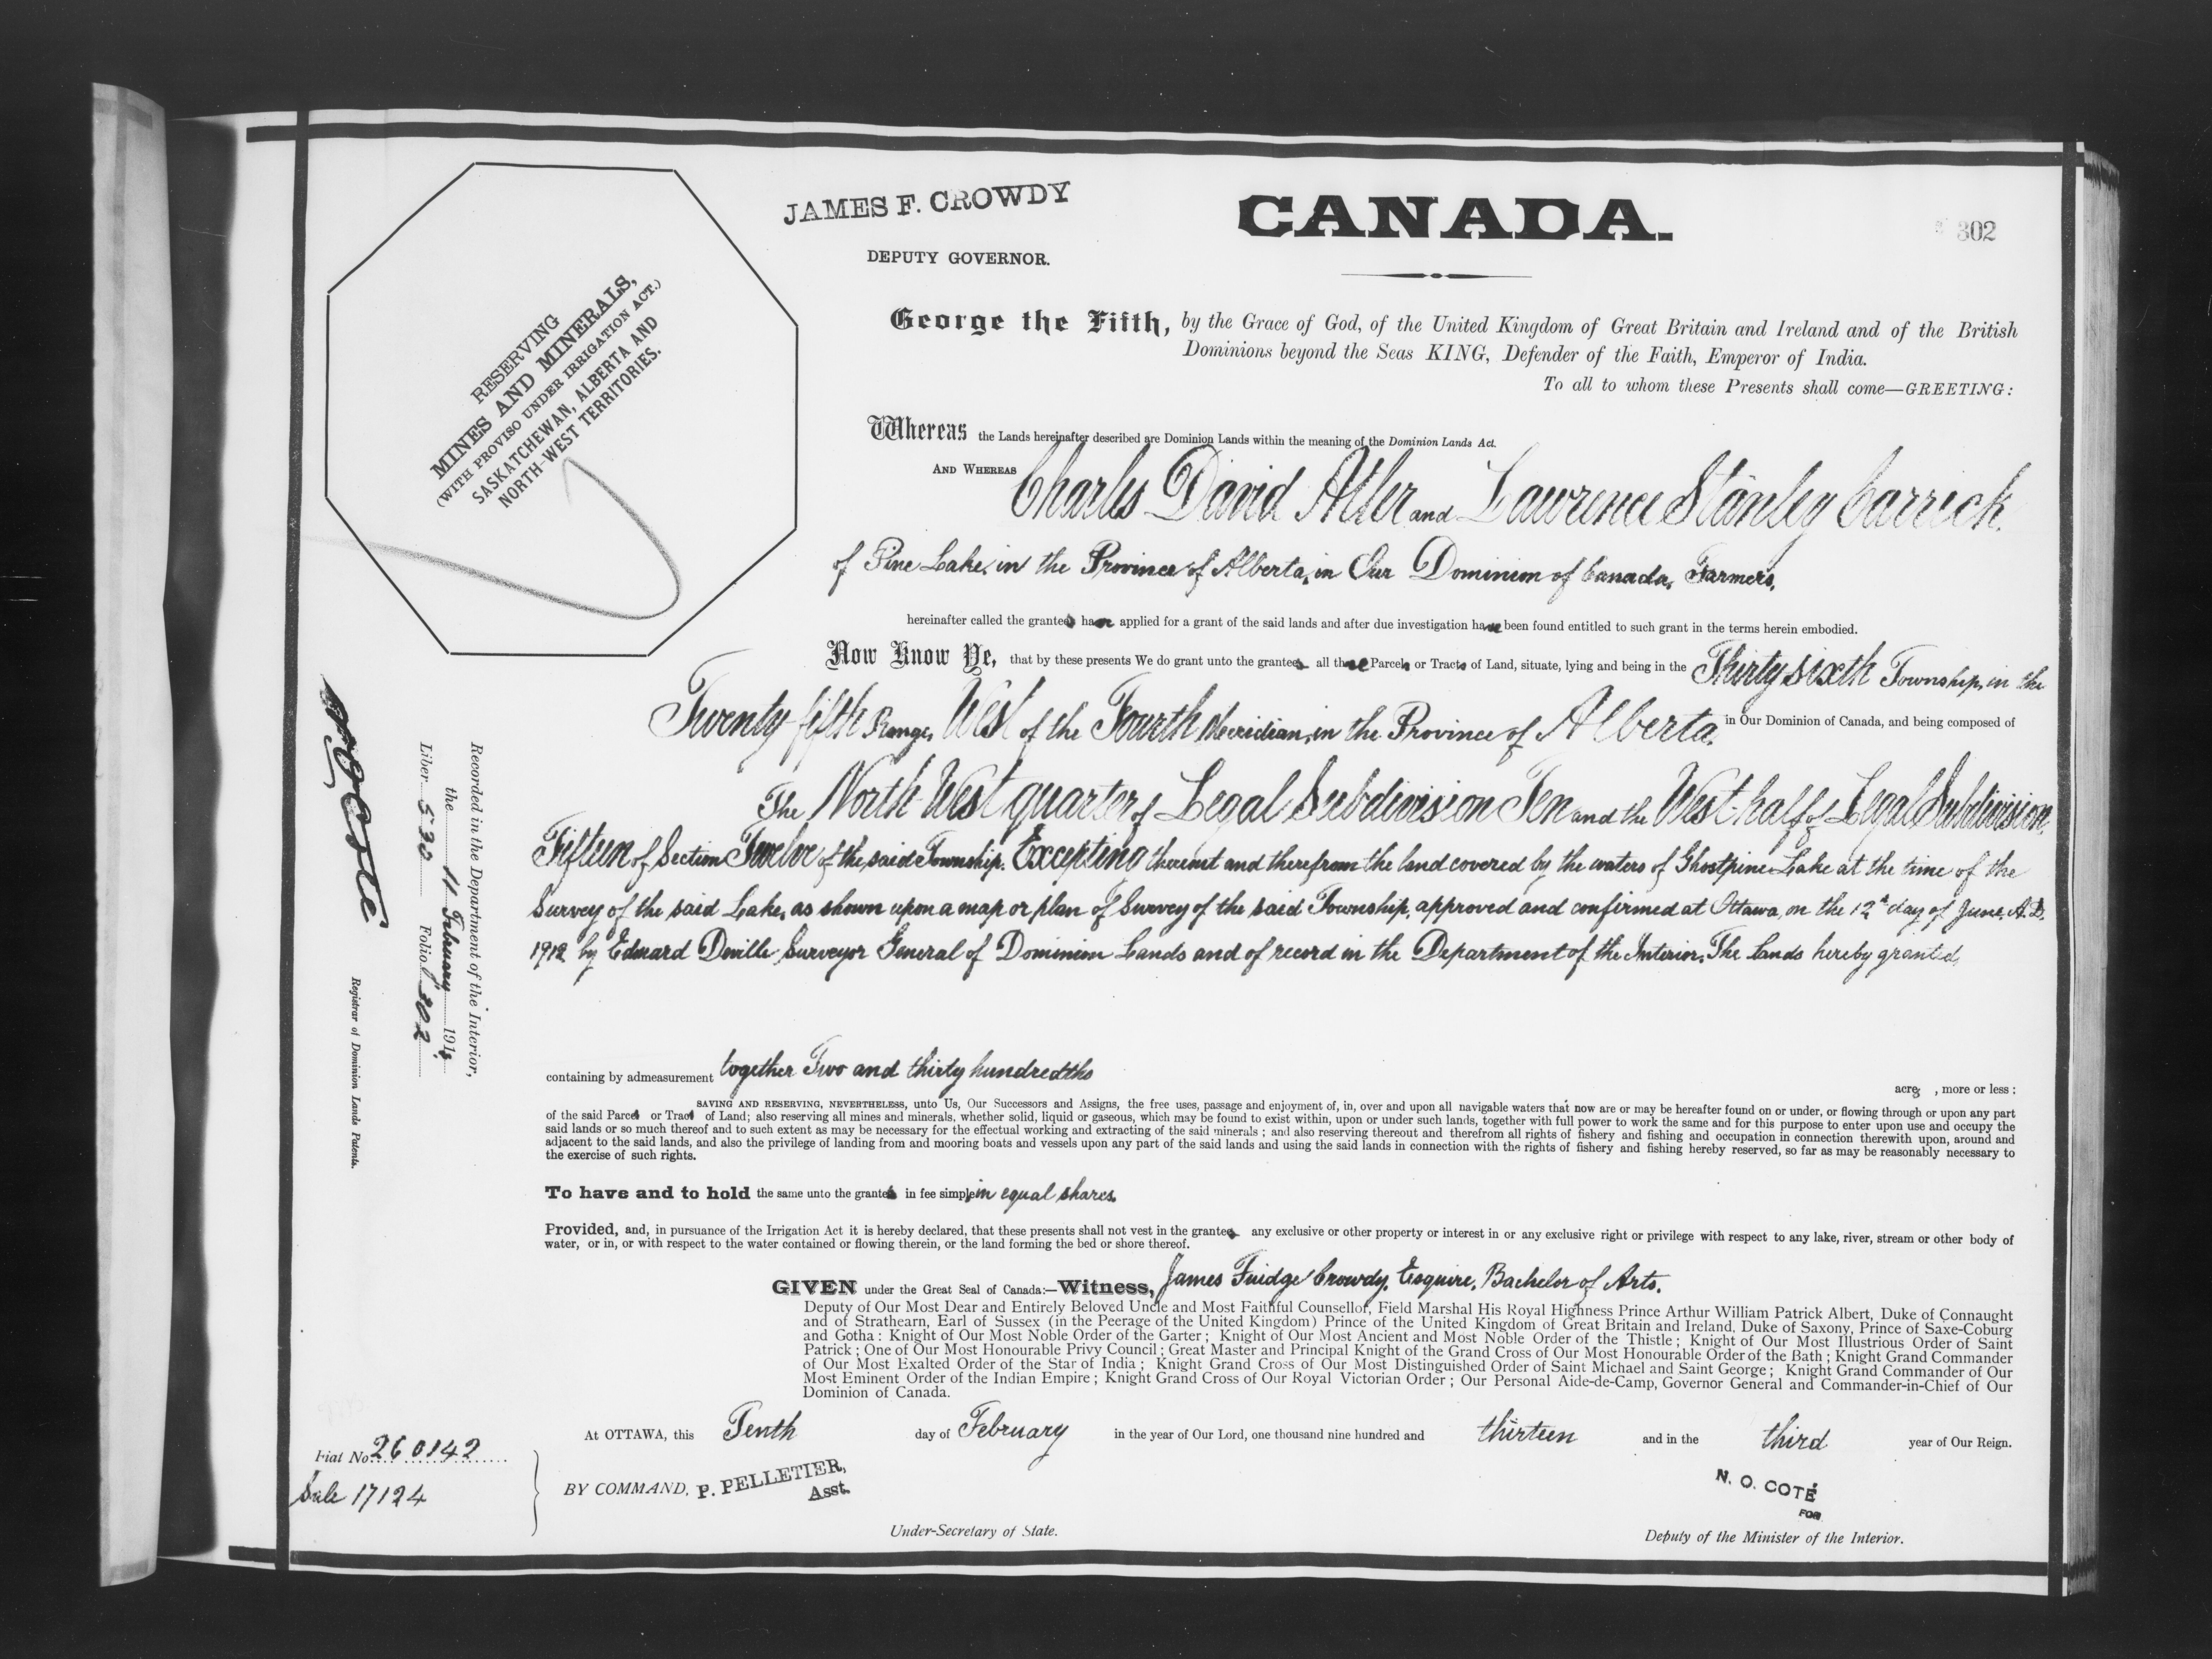 JAMES F. CROWDY
CANADA.
302
DEPUTY GOVERNOR.
RESERVING
MINES AND MINERALS,
(WITH PROVISO UNDER IRRIGATION ACT.)
SASKATCHEWAN, ALBERTA AND
NORTH-WEST TERRITORIES.
George the Fifth, by the Grace of God, of the United Kingdom of Great Britain and Ireland and of the British
Dominions beyond the Seas KING, Defender of the Faith, Emperor of India.
To all to whom these Presents shall come—GREETING:
Whereas the Lands hereinafter described are Dominion Lands within the meaning of the Dominion Lands Act.
AND WHEREAS Charles David and Lawrence Stanley Carrick
of Pine Lake, in the Province of Alberta, in Our Dominion of Canada, Farmers,
hereinafter called the grantees have applied for a grant of the said lands and after due investigation have been found entitled to such grant in the terms herein embodied.
Now Know Ye, that by these presents We do grant unto the grantees all those Parcels or Tracts of Land, situate, lying and being in the Thirty sixth Township, in the
Twenty fifth Range, West of the Fourth Meridian, in the Province of Alberta, in Our Dominion of Canada, and being composed of
The North West quarter of Legal Subdivision Ten and the West half of Legal Subdivision
Fifteen of Section Twelve of the said Township. Excepting thereout and therefrom the land covered by the waters of Ghostpine Lake at the time of the
Survey of the said Lake, as shown upon a map or plan of Survey of the said Township, approved and confirmed at Ottawa, on the 12th day of June, A.D.
1912 by Edouard Deville Surveyor General of Dominion Lands and of record in the Department of the Interior. The lands hereby granted
containing by admeasurement together Two and thirty hundredths acres , more or less :
SAVING AND RESERVING, NEVERTHELESS, unto Us, Our Successors and Assigns, the free uses, passage and enjoyment of, in, over and upon all navigable waters that now are or may be hereafter found on or under, or flowing through or upon any part
of the said Parcel or Tract of Land; also reserving all mines and minerals, whether solid, liquid or gaseous, which may be found to exist within, upon or under such lands, together with full power to work the same and for this purpose to enter upon use and occupy the
said lands or so much thereof and to such extent as may be necessary for the effectual working and extracting of the said minerals ; and also reserving thereout and therefrom all rights of fishery and fishing and occupation in connection therewith upon, around and
adjacent to the said lands, and also the privilege of landing from and mooring boats and vessels upon any part of the said lands and using the said lands in connection with the rights of fishery and fishing hereby reserved, so far as may be reasonably necessary to
the exercise of such rights.
To have and to hold the same unto the grantees in fee simple, in equal shares.
Provided, and, in pursuance of the Irrigation Act it is hereby declared, that these presents shall not vest in the grantees any exclusive or other property or interest in or any exclusive right or privilege with respect to any lake, river, stream or other body of
water, or in, or with respect to the water contained or flowing therein, or the land forming the bed or shore thereof.
GIVEN under the Great Seal of Canada:—Witness, James Fuidge Crowdy, Esquire, Bachelor of Arts.
Deputy of Our Most Dear and Entirely Beloved Uncle and Most Faithful Counsellor, Field Marshal His Royal Highness Prince Arthur William Patrick Albert, Duke of Connaught
and of Strathearn, Earl of Sussex (in the Peerage of the United Kingdom) Prince of the United Kingdom of Great Britain and Ireland, Duke of Saxony, Prince of Saxe-Coburg
and Gotha : Knight of Our Most Noble Order of the Garter ; Knight of Our Most Ancient and Most Noble Order of the Thistle ; Knight of Our Most Illustrious Order of Saint
Patrick ; One of Our Most Honourable Privy Council ; Great Master and Principal Knight of the Grand Cross of Our Most Honourable Order of the Bath ; Knight Grand Commander
of Our Most Exalted Order of the Star of India ; Knight Grand Cross of Our Most Distinguished Order of Saint Michael and Saint George ; Knight Grand Commander of Our
Most Eminent Order of the Indian Empire ; Knight Grand Cross of Our Royal Victorian Order ; Our Personal Aide-de-Camp, Governor General and Commander-in-Chief of Our
Dominion of Canada.
At OTTAWA, this Tenth day of February in the year of Our Lord, one thousand nine hundred and thirteen and in the third year of Our Reign.
BY COMMAND, P. PELLETIER,
Asst.
Under-Secretary of State.
N. O. COTÉ
FOR
Deputy of the Minister of the Interior.
Fiat No. 260142
Sale 17124
Recorded in the Department of the Interior,
the 11 February 1913
Liber 530 Folio 302
N O Coté
Registrar of Dominion Lands Patents.